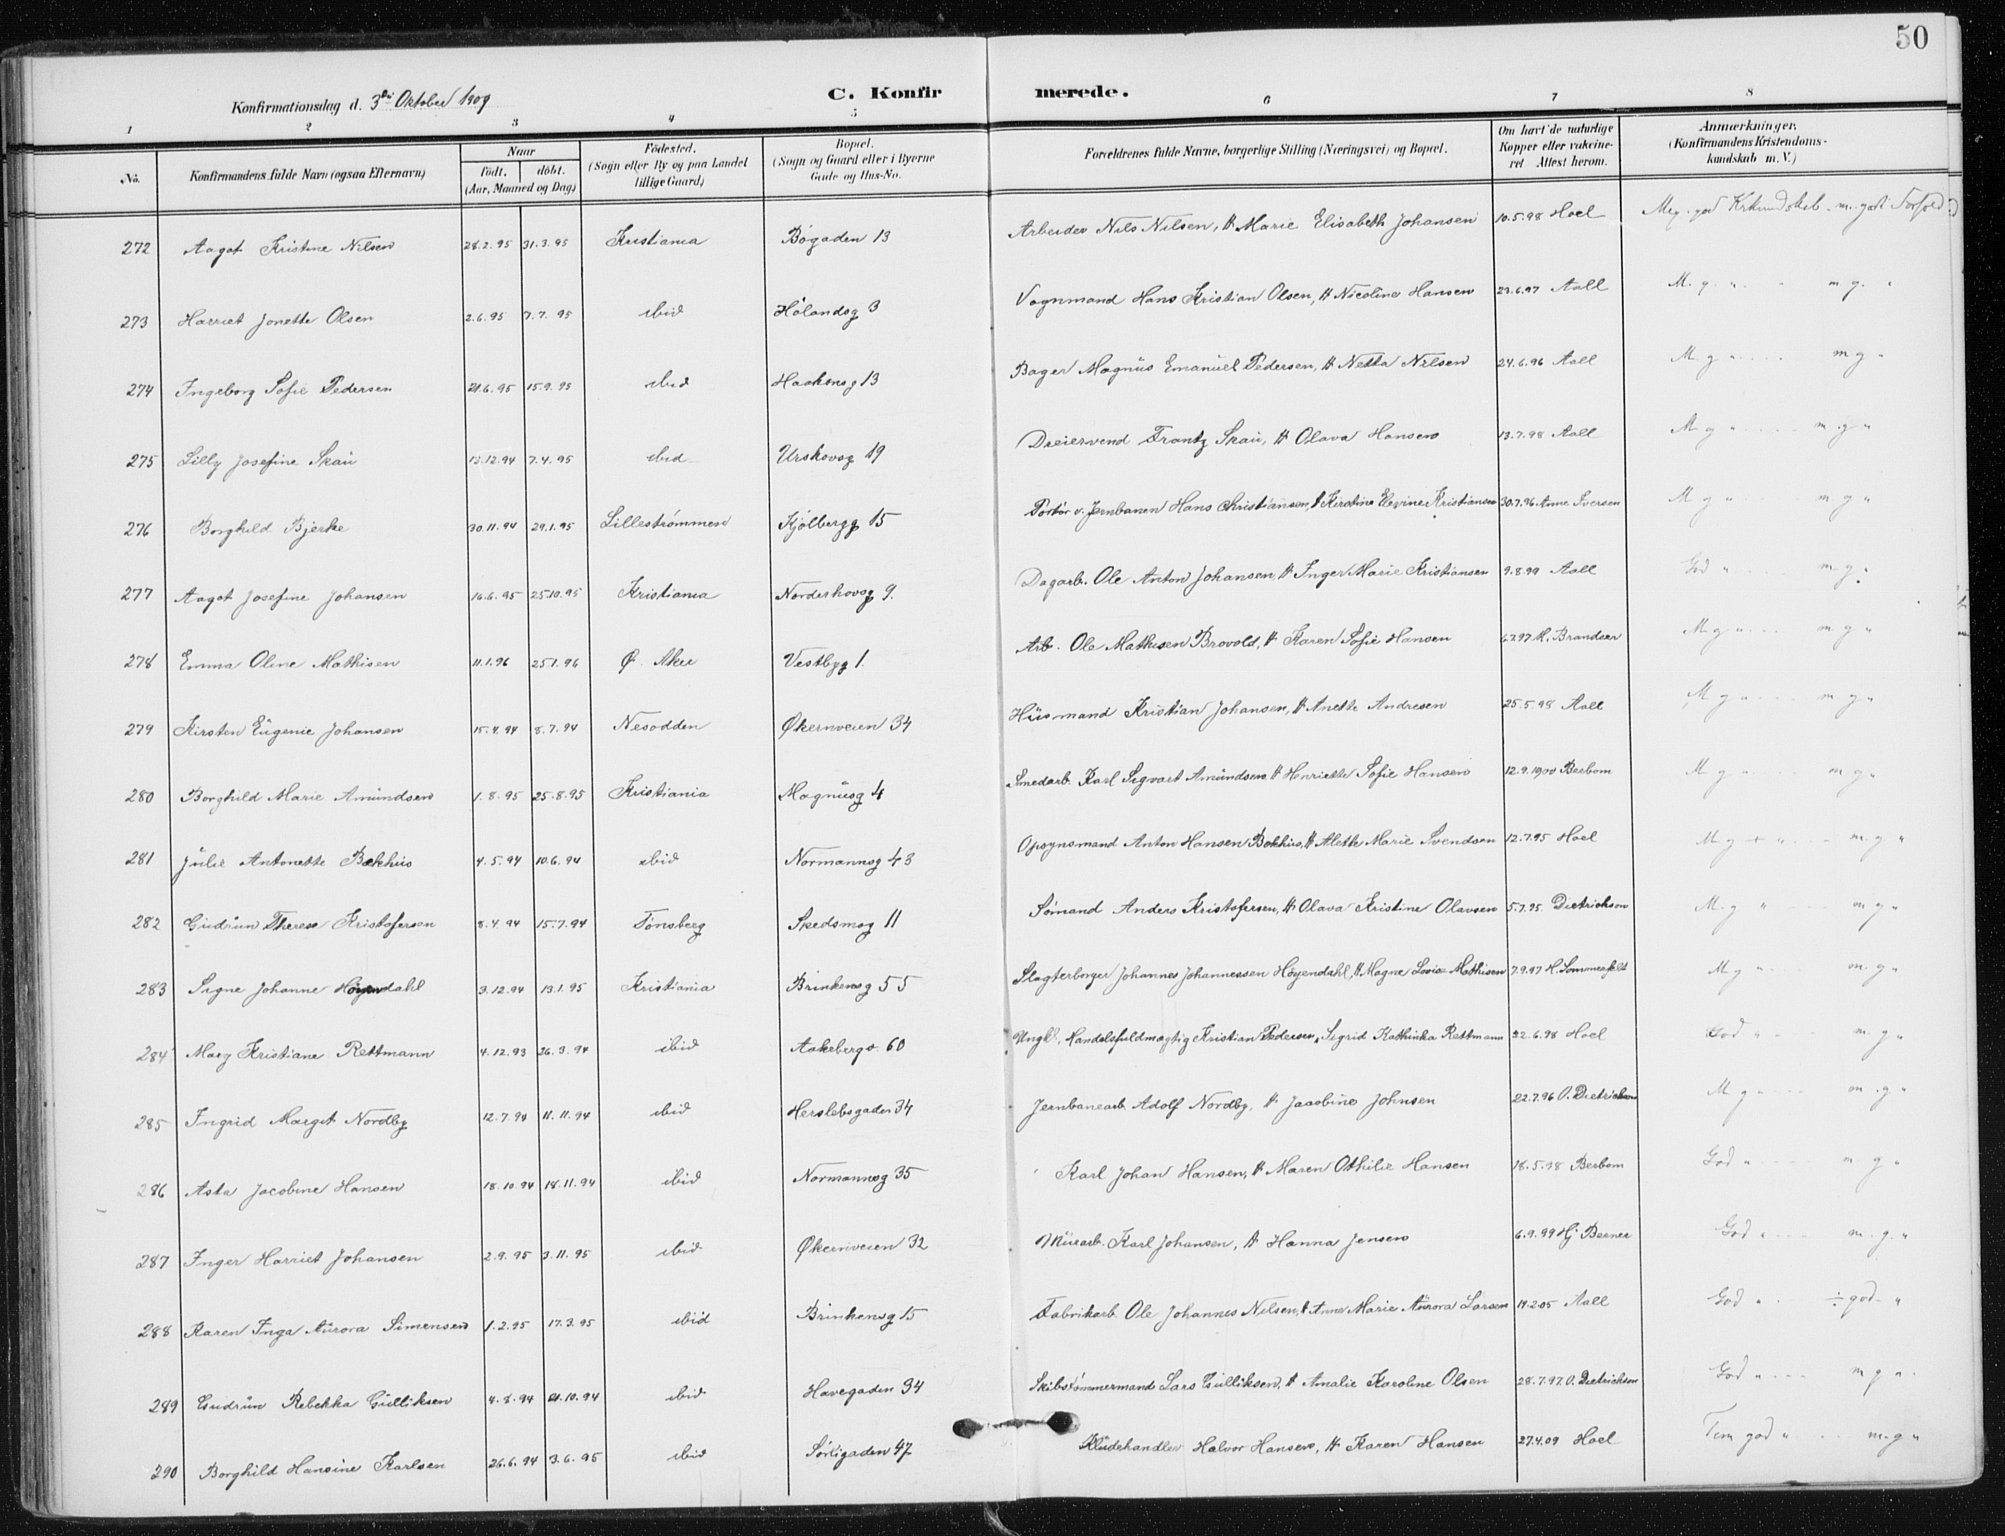 50
Konfirmationsdag d. 3die Oktober 1909 C. Konfirmerede.
1 2 3 4 5 6 7 8
No. Konfirmandens fulde Navn (ogsaa Efternavn) Naar født. døbt. (Aar, Maaned og Dag) Fødested. (Sogn eller By og paa Landet tillige Gaard) Bopæl. (Sogn og Gaard eller i Byerne Gade og Hus-No. Forældrenes fulde Navne, borgerlige Stilling (Næringsvei) og Bopæl. Om havt de naturlige Kopper eller vakcineret Attest herom. Anmærkninger. (Konfirmandens Kristendomskundskab m. V.)
272 Aagot Kristine Nilsen 28.2.95 31.3.95 Kristiania Bøgaden 13 Arbeider Nils Nilsen, & Marie Elisabeth Johansen 10.5.98 Hoel Meg. god Krkundskab m. godt Forhold
273 Harriet Jonette Olsen 2.6.95 7.7.95 ibid Hølandsg 3 Vognmand Hans Kristian Olsen, & Nicoline Hansen 23.6.97 Aall M. g. " m g. "
274 Ingeborg Sofie Pedersen 21.6.95 15.9.95 ibid Haakonsg 13 Bager Magnus Emanuel Pedersen, & Netta Nilsen 24.6.96 Aall M g " m g "
275 Lilly Josefine Skau 13.12.94 7.4.95 ibid Urskovsg 19 Dreiersvend Frantz Skau, & Olava Hansen 13.7.98 Aall M g " m g "
276 Borghild Bjerke 30.11.94 29.1.95 Lillestrømmen Kjølbergg 15 Portør v. Jernbanen Hans Christiansen, & Kirstine Elevine Kristiansen 30.7.96 Anne Iversen M g " m g "
277 Aagot Josefine Johansen 16.6.95 25.10.95 Kristiania Norderhovsg 9. Dagarb. Ole Anton Johansen, & Inger Marie Kristiansen 9.8.99 Aall God " m g "
278 Emma Oline Mathisen 11.1.96 25.1.96 Ø. Aker Vestbyg 1. Arb. Ole Mathisen Brovold, & Karen Sofie Hansen 6.7.97 K. Brandser M g " m g "
279 Kirsten Eugenie Johansen 15.4.94 8.7.94 Nesodden Økernveien 34 Husmand Kristian Johansen, & Anette Andresen 25.5.98 Aall M g " m g "
280 Borghild Marie Amundsen 1.8.95 25.8.95 Kristiania Magnusg 4 Smedarb. Karl Sigvart Amundsen & Henriette Sofie Hansen 12.9.1900 Berbom M g " m g "
281 Julie Antonette Bækhus 4.5.94 10.6.94 ibid Normannsg 43 Opsynsmand Anton Hansen Bækhus, & Alethe Marie Svendsen 12.7.95 Hoel M g + " m. g "
282 Gudrun Therese Kristofersen 8.4.94 15.7.94 Tønsberg Skedsmog 11 Sømand Anders Kristofersen, & Olava Kristine Olavsen 5.7.95. Dietrichson M. g " m g "
283 Signe Johanne Høyendahl 3.12.94 13.1.95 Kristiania Brinkensg 55 Slagterborger Johannes Johannessen Høyendahl, & Magna Lovise Mathisen 7.9.97 H. Sommerfelt M g " m. g "
284 Mary Kristiane Rettmann 4.12.93 26.3.94 ibid Aakebergv. 60 Ungk., Handelsfuldmægtig Kristian Pedersen, Sigrid Kathinka Rettmann 22.6.98 Hoel God " m. g "
285 Ingrid Margit Nordby 12.7.94 11.11.94 ibid Herslebsgaden 34 Jernbanearb. Adolf Nordby, & Jacobine Johnsen 22.7.96 O. Dietrichson M g " m. g "
286 Asta Jacobine Hansen 18.10.94 18.11.94 ibid Normannsg 35 Karl Johan Hansen, & Maren Othilie Hansen 18.5.98 Berbom God " m. g "
287 Inger Harriet Johansen 2.9.95 3.11.95 ibid Økernveien 32 Murarb. Karl Johansen, & Hanna Jensen 6.9.99 Hj. Berner God " m. g. "
288 Karen Inga Aurora Simensen 1.2.95 17.3.95 ibid Brinkensg 15 Fabrikarb Ole Johannes Nilsen, & Anne Marie Aurora Larsen 14.2.05 Aall God " ÷ god. "
289 Gudrun Rebekka Gulliksen 4.8.94 21.10.94 ibid Havegaden 34 Skibstømmermand Lars Gulliksen, & Amalie Karoline Olsen 28.7.97 O. Dietrichson God " m g "
290 Borghild Hansine Karlsen 26.6.94 3.6.95 ibid Sørligaden 47 Kludehandler Halvor Hansen, & Karen Hansen 27.4.09 Hoel Tem god " m. g "